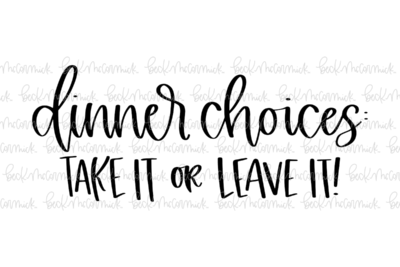 dinner choices:
TAKE IT OR LEAVE IT!